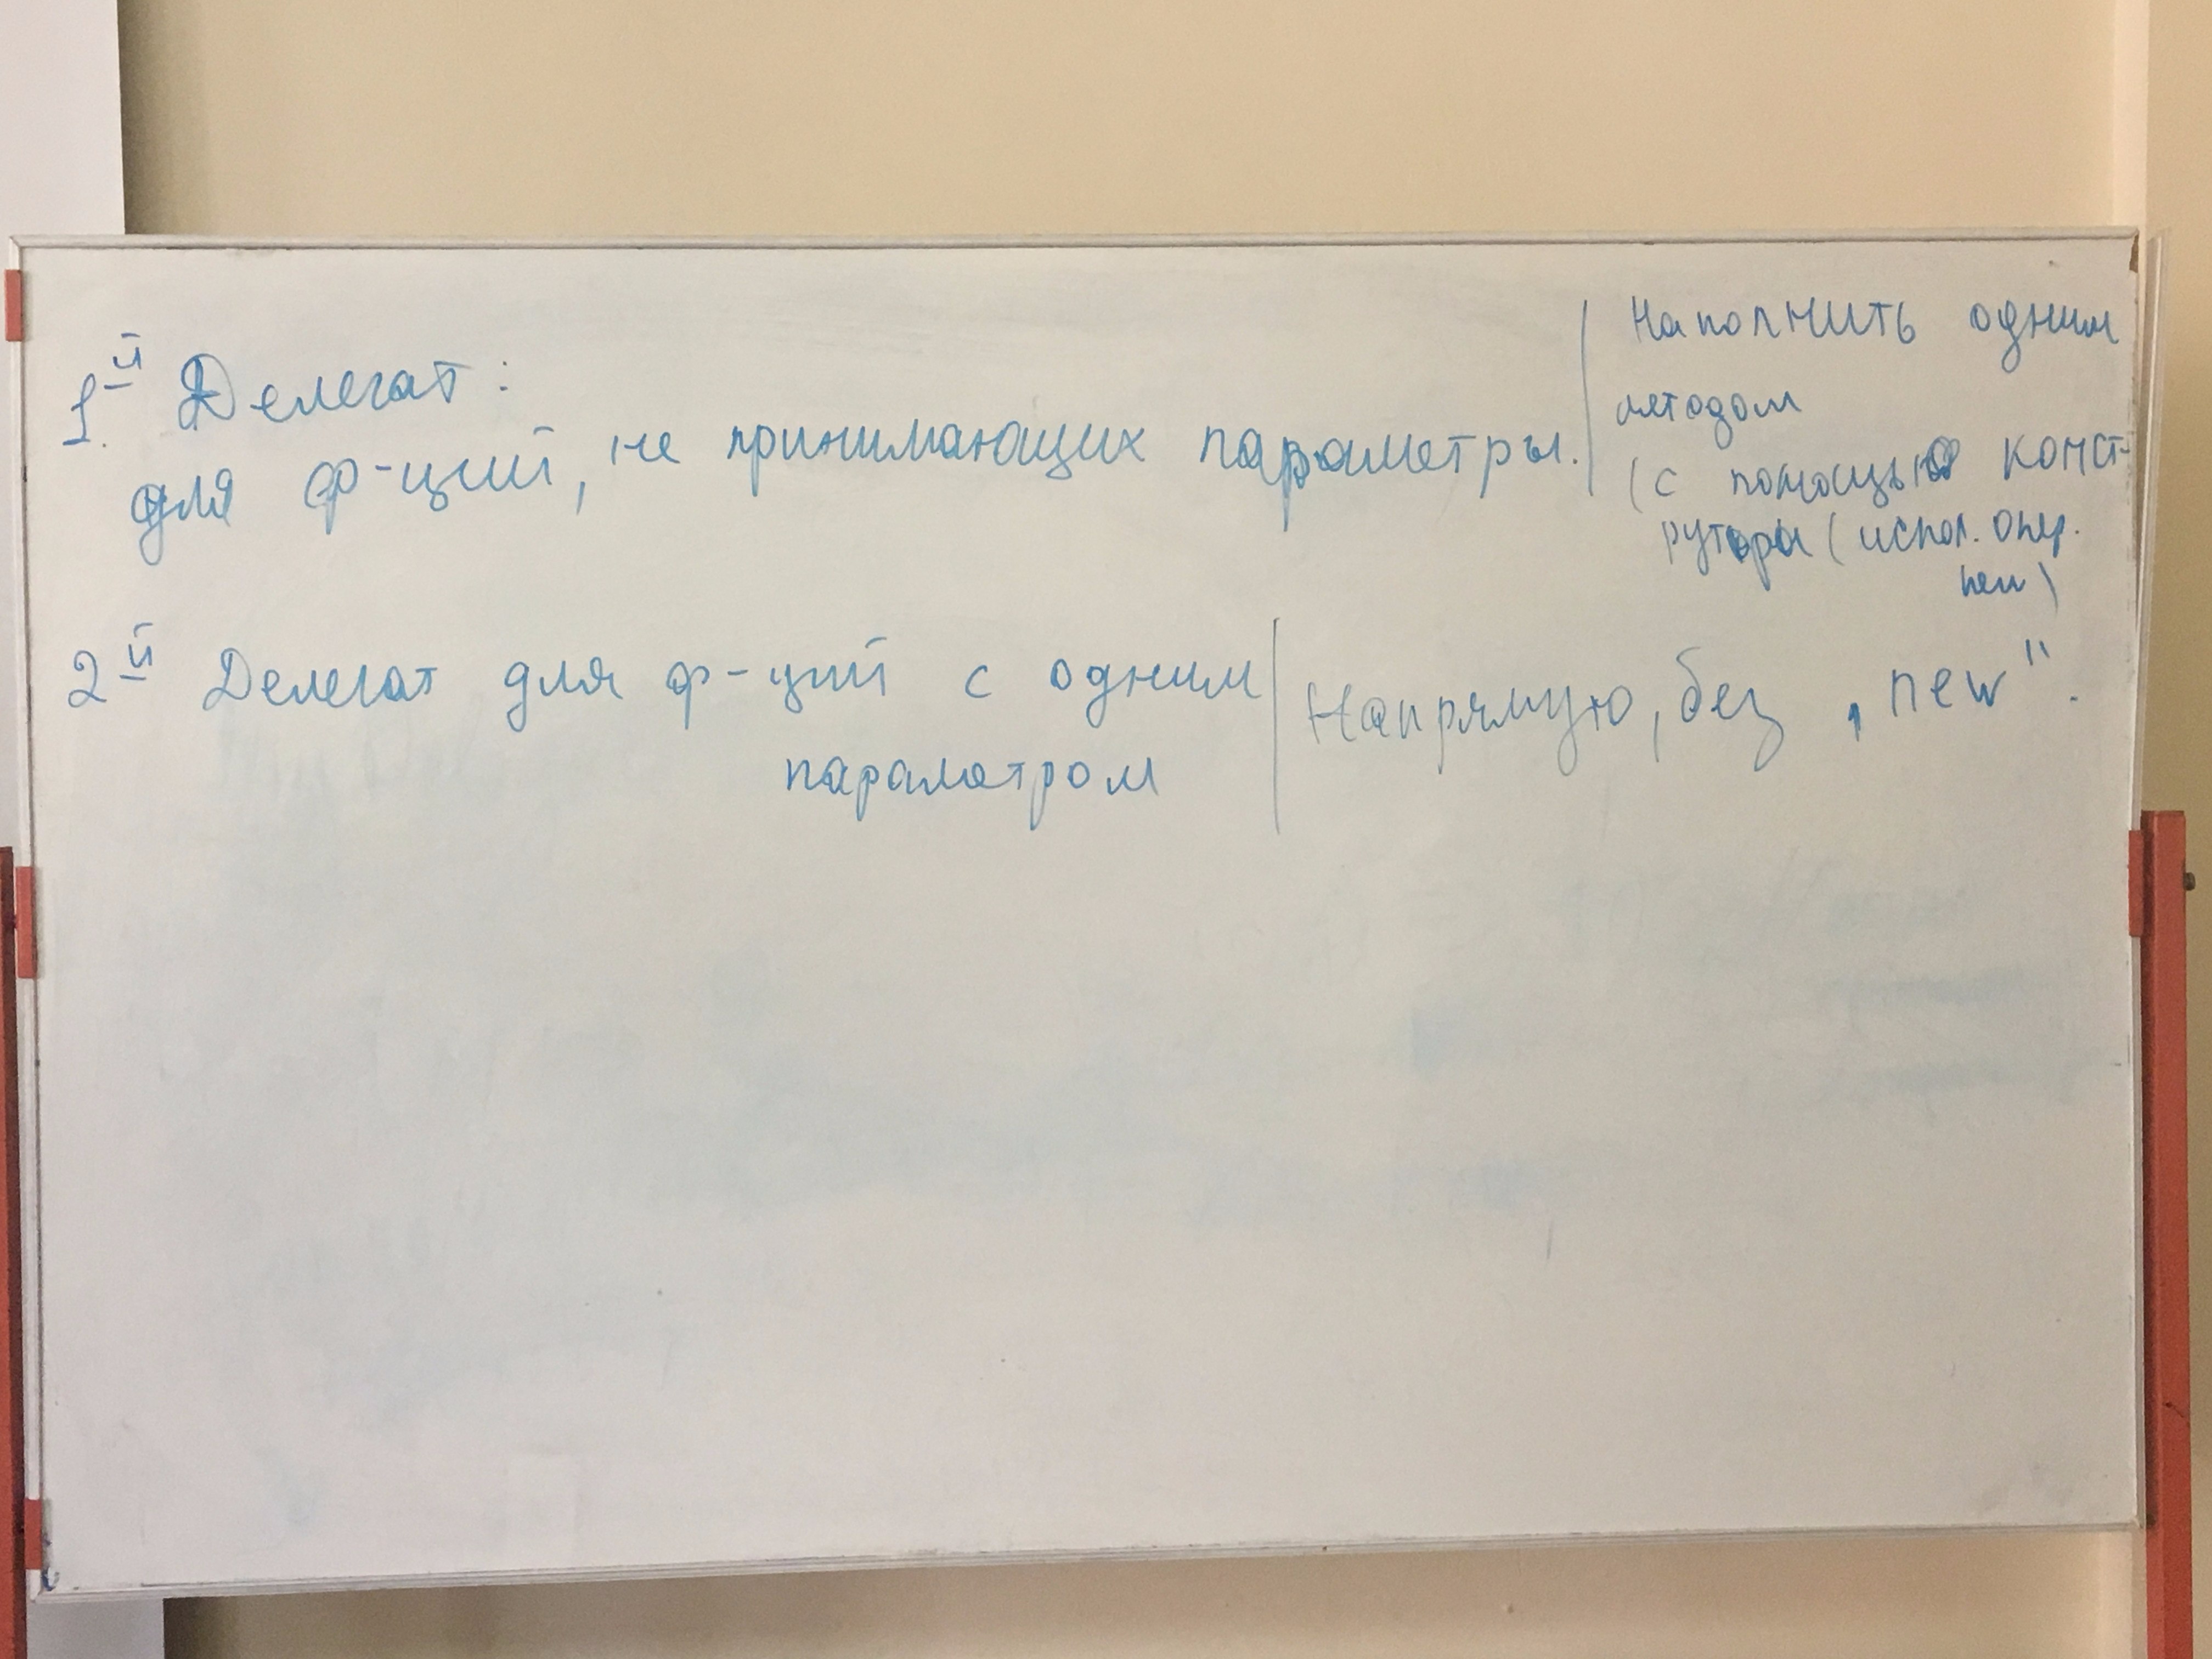 1й Делегат:
для ф-ций, не принимающих параметры.
Наполнить одним
методом
(с помощью конст-
руктора (испол. опер.
new)
2й Делегат для ф-ций с одним
параметром
Напрямую, без „new".